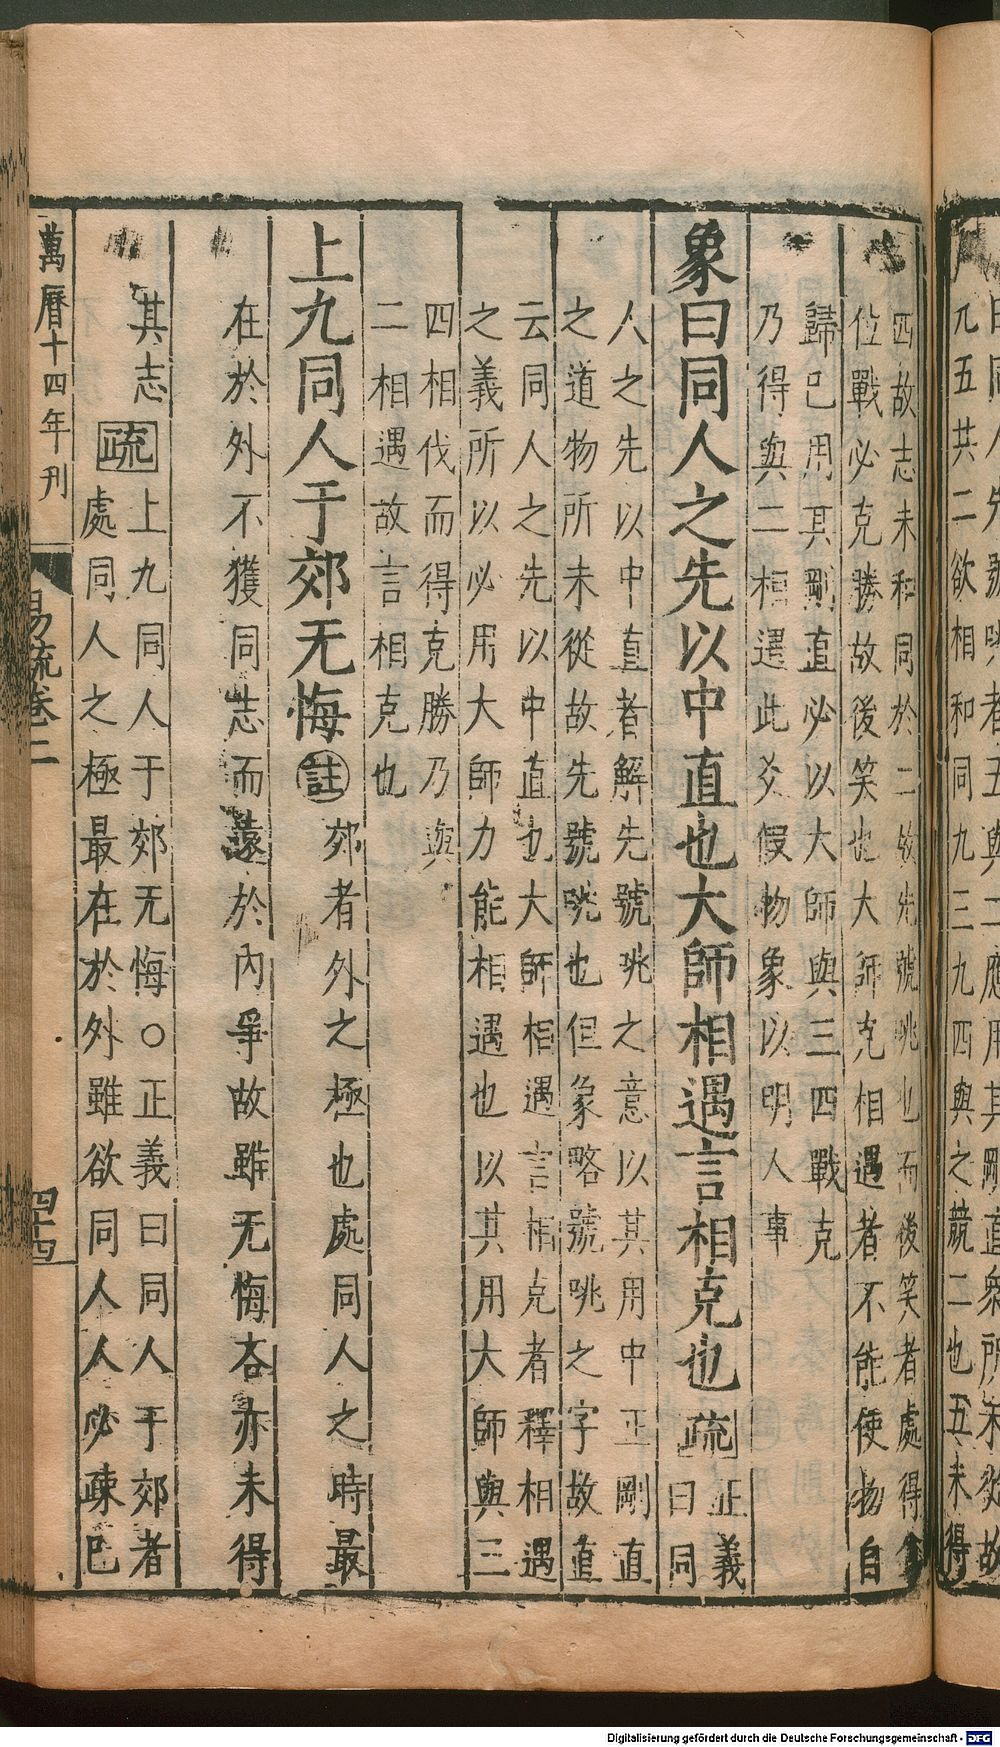 曰同人先號咷者五與二應用其剛直衆所未從故
九五共二欲相和同九三九四與之競二也五未得
四故志未和同於二故先號咷也而後笑者處得尊
位戰必克勝故後笑也大師克相遇者不能使物自
歸已用其剛直必以大師與三四戰克
乃得與二相遇此爻假物象以明人事
象曰同人之先以中直也大師相遇言相克也疏正義
曰同
人之先以中直者解先號咷之意以其用中正剛直
之道物所未從故先號咷也但象略號咷之字故直
云同人之先以中直也大師相遇言相克者釋相遇
之義所以必用大師力能相遇也以其用大師與三
四相伐而得克勝乃與
二相遇故言相克也
上九同人于郊无悔註郊者外之極也處同人之時最
在於外不獲同志而遠於內爭故雖无悔吝亦未得
其志疏上九同人于郊无悔○正義曰同人于郊者
處同人之極最在於外雖欲同人人必疎已
萬曆十四年刊
易疏卷二
四十四
Digitalisierung gefördert durch die Deutsche Forschungsgemeinschaft - DFG